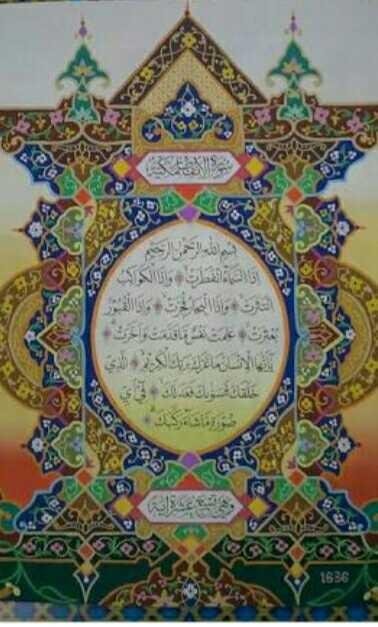 سورة الانفطار مكية
بسم الله الرحمن الرحيم
إذا السماء انفطرت وإذا الكواكب
انتثرت وإذا البحار فجرت وإذا القبور
بعثرت علمت نفس ما قدمت وأخرت
يأيها الإنسان ما غرك بربك الكريم الذي
خلقك فسويك فعدلك في أي
صورة ما شاء ركبك
وهي تسع عشرة آية
1636